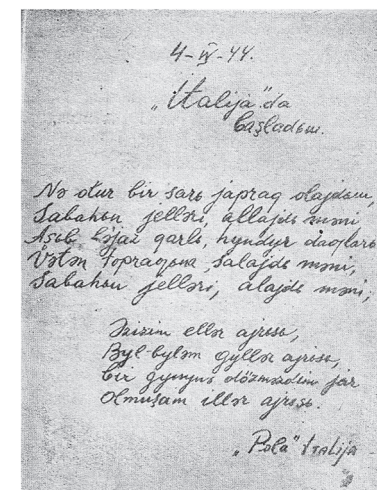 4-IV-44.
„Italija"da
başladьm.
Nə olur bir sarь japraq olajdьm,
Sabahьn jelləri, allajdь məni
Aşьb qarlь, hyndyr daqlarь
Vətən topraqьna, salajdь məni,
Sabahьn jelləri, alajdь məni;
Əzizim ellər ajrьsь,
Byl-byləm gyllər ajrьsь,
Bir gynynə dözmədim jar
Olmuşam illər ajrьsь.
„Pola" Italija